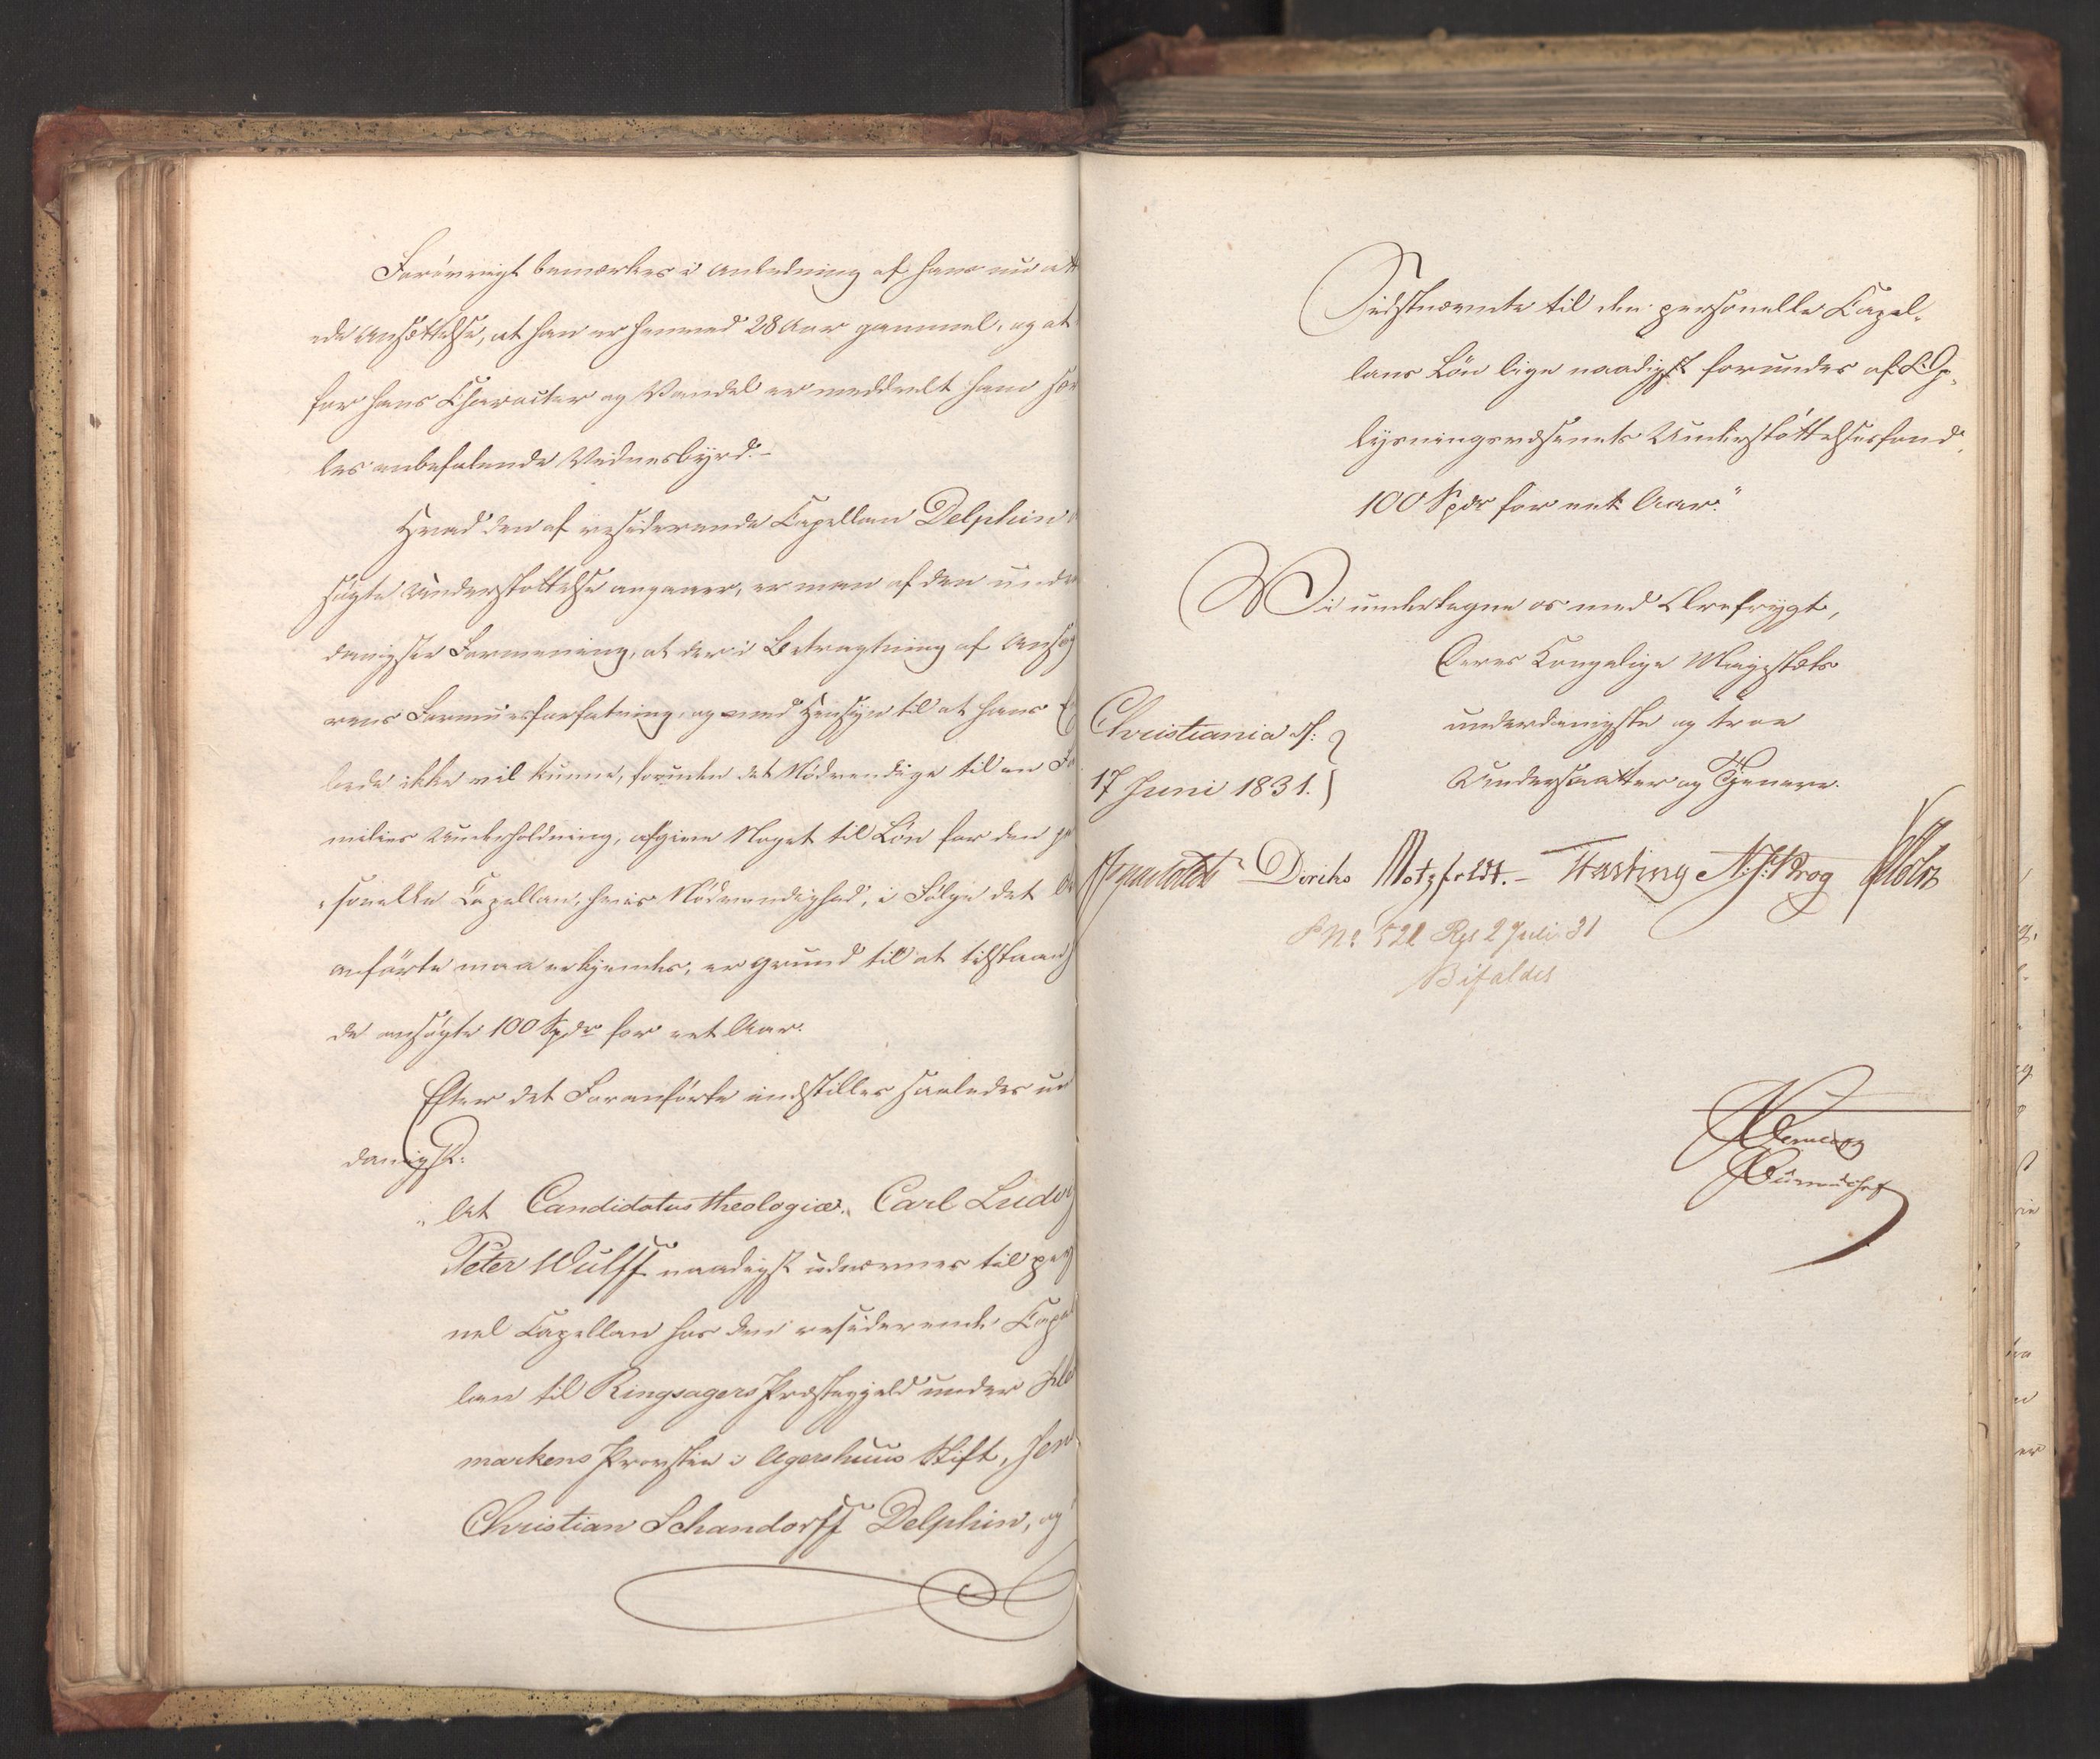 Forövrigt bemærkes i Anledning af hans nu att
ede Ansættelse, at han er henved 28 Aar gammel, og at
for hans Character og Vandel er meddeelt ham sær
les anbefalende Vidnesbyrd.-
Hvad den af residerende Capellan Delphin
sögte Understöttelse angaaer, er man af den under
danigste Formening, at der i Betragtning af Ansög
erens Formuesforfatning, og med Hensyn til at hans
bede ikke vil kunne, foruden det Nödvendige til en Fa
milies Underholdning, afgive Noget til Lön for den per
sonelle Capellan, hvis Nödvendighed, i Fölge det
anförte maa erkjendes, er Grund til at tilstaae
de ansögte 100 Spdr for eet Aar.
Efter det Foranförte indstilles saaledes un
danigst:
"At Candidatus theologiæ, Carl Ludvig
Peter Wulff naadigst udnævnes til per
nel Capellan hos den residerende Capel
lan til Ringsagers Præstegjeld under Hede
markens Provstie i Agershuus Stift, Jens
Christian Schandorff Delphin, og
Sidstnævnte til den personelle Capel-
lans Lön lige naadigst forundes af Op-
lysningsvæsenets Understöttelsesfond,
100 Spdr for eet Aar."
Vi undertegne os med Ærefrygt,
Deres Kongelige Majestæts
Christiania d:
underdanigste og troe
17 Juni 1831.
Undersaatter og Tjenere.
Diriks Motzfeldt.- Fasting N. J. Krog Holst
No 521 Rgs 2 Juli 31
Bifaldes